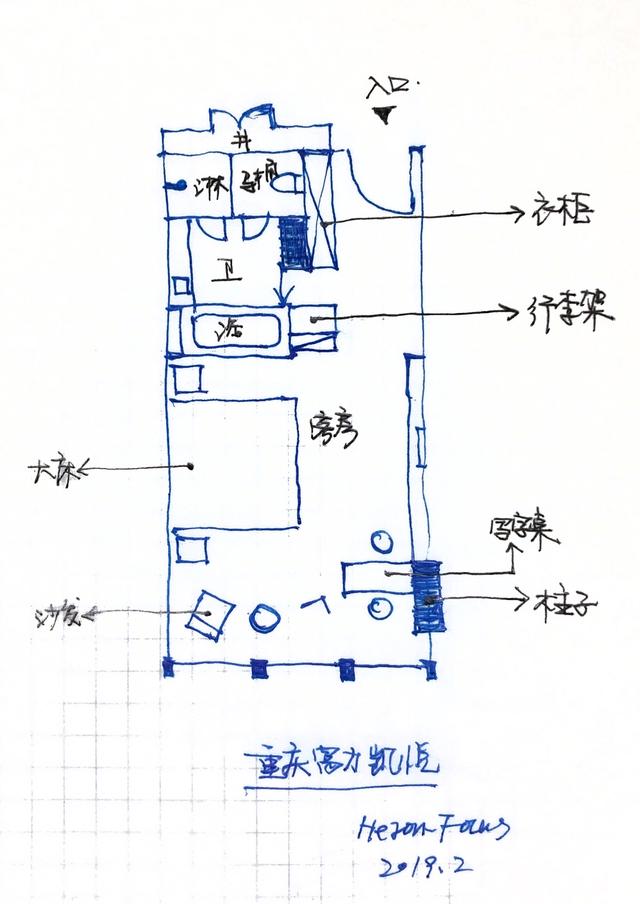 入口
井
淋
马桶
衣柜
卫
行李架
浴
客房
大床
写字桌
沙发
柱子
重庆富力凯悦
Heron Focus
2019.2